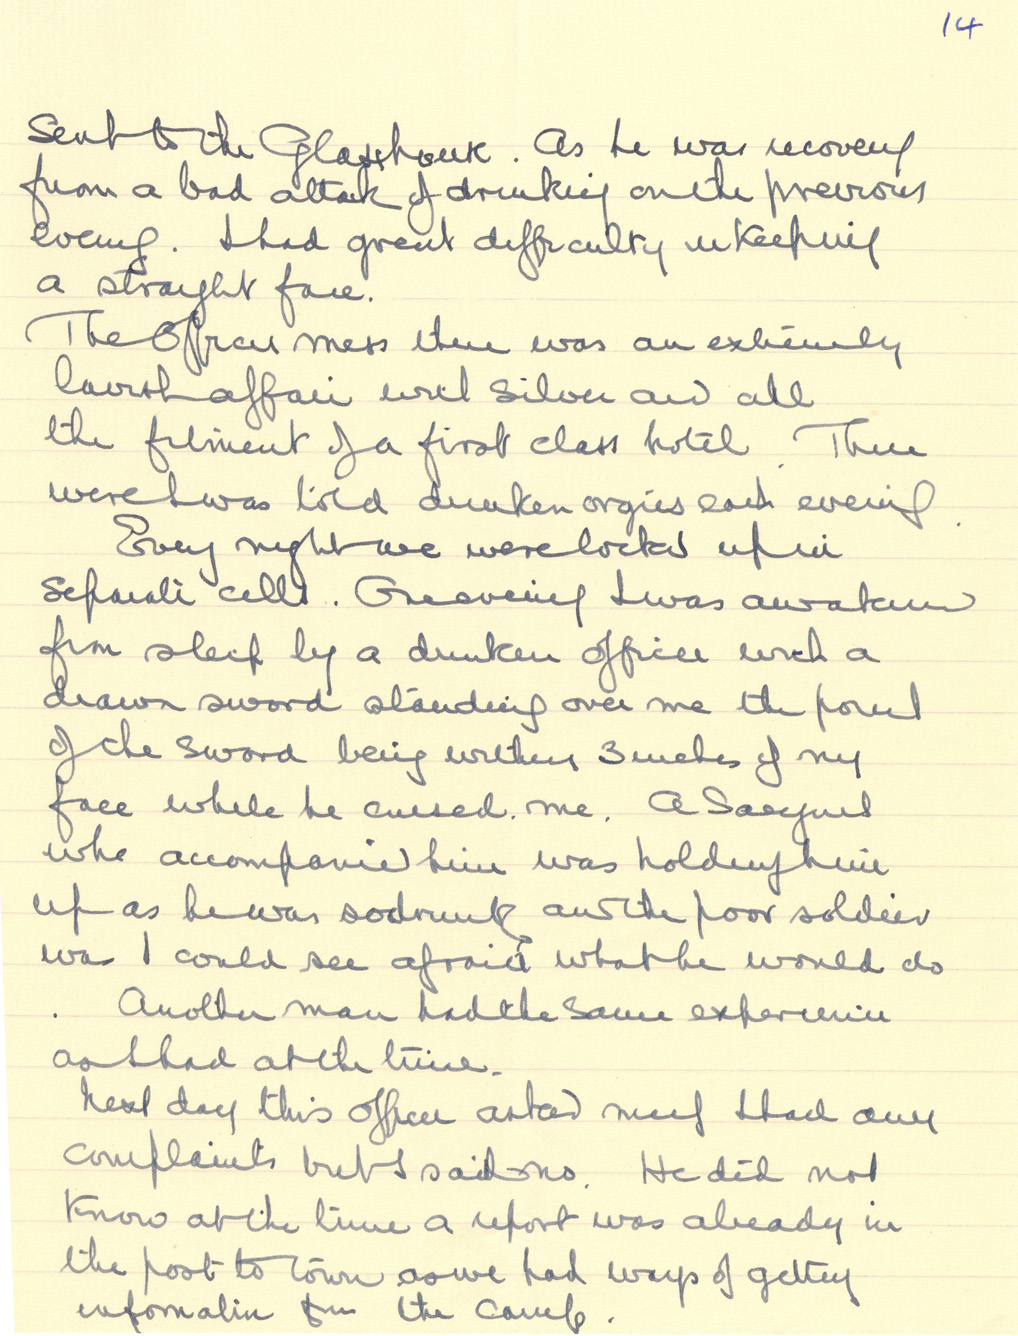 14
Sent to the Glasshouse. As he was recovery
from a bad attack of drinking on the previous
evening. I had great difficulty in keeping
a straight face.
The Officer mess there was an extremely
lavish affair with silver and all
the fitment of a first class hotel. There
were I was told drunken orgies each evening.
Every night we were locked up in
separate cells. One evening I was awakened
from sleep by a drunken officer with a
drawn sword standing over me the point
of the sword being within 3 inches of my
face while he cursed me. A Sargent
who accompanied him was holding him
up as he was so drunk and the poor soldier
was I could see afraid what he would do
. Another man had the same experience
as I had at the time.
Next day this officer asked me if I had any
complaints but I said no. He did not
know at the time a report was already in
the post to town as we had ways of getting
information from the camp.